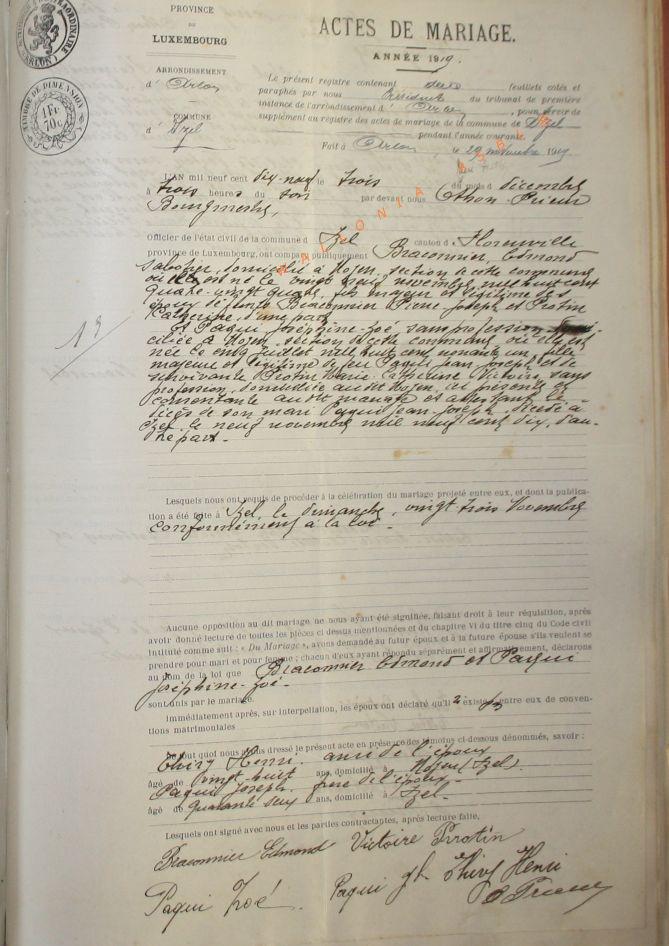 PROVINCE
DE
LUXEMBOURG
ARRONDISSEMENT
d' Arlon
COMMUNE
d' Izel
TIMBRE DE DIMENSION
1 Fr
70c
ARLON
13
ACTES DE MARIAGE.
ANNÉE 1919.
Le présent registre contenant deux feuillets cotés et
paraphés par nous Président du tribunal de première
instance de l'arrondissement d' Arlon, pour servir de
supplément au registre des actes de mariage de la commune de Izel
pendant l'année courante.
Fait à Arlon le 29 novembre 1919
L'AN mil neuf cent dix-neuf le trois du mois de décembre
à trois heures du soir par devant nous Othon Prieur
Bourgmestre,
Officier de l'état civil de la commune d Izel canton d Florenville
province de Luxembourg, ont comparu publiquement Braconnier, Edmond
sabotier, domicilié à Moyen, section de cette commune
où il est né le vingt trois novembre mil huit cent
quatre-vingt quatre, fils majeur et légitime des
époux défunts Braconnier Pierre Joseph et Protin
Catherine, d'une part
Et Paqui Joséphine-Zoé, sans profession, domi-
ciliée à Moyen, section de cette commune où elle est
née le cinq juillet mil huit cent nonante un, fille
majeure et légitime de feu Paqui Jean Joseph et de
survivante Protin Marie Catherine Victoire, sans
profession, domiciliée audit Moyen, ici présente et
consentante audit mariage et attestant le
décès de son mari Paqui Jean-Joseph, décédé à
Izel, le neuf novembre mil neuf cent dix, d'au-
tre part.
Lesquels nous ont requis de procéder à la célébration du mariage projeté entre eux, et dont la publica-
tion a été faite à Izel, le dimanche, vingt-trois Novembre
conformément à la loi.
Aucune opposition au dit mariage ne nous ayant été signifiée, faisant droit à leur réquisition, après
avoir donné lecture de toutes les pièces ci dessus mentionnées et du chapitre VI du titre cinq du Code civil
intitulé comme suit : « Du Mariage », avons demandé au futur époux et à la future épouse s'ils veulent se
prendre pour mari et pour femme ; chacun d'eux ayant répondu séparément et affirmativement, déclarons
au nom de la loi que Braconnier Edmond et Paqui
Joséphine-Zoé.
sont unis par le mariage.
Immédiatement après, sur interpellation, les époux ont déclaré qu'il existe entre eux de conven-
tions matrimoniales
De tout quoi nous avons dressé le présent acte en présence des témoins ci-dessous dénommés, savoir :
Thiry Henri, ami de l'époux
âgé de vingt-huit ans, domicilié à Moyen (Izel).
Paqui Joseph, frère de l'épouse
âgé de quarante deux ans, domicilié à Izel.
Lesquels ont signé avec nous et les parties contractantes, après lecture faite,
Braconnier Edmond Victoire Protin
Paqui Zoé. Paqui Jh Thiry Henri
O Prieur